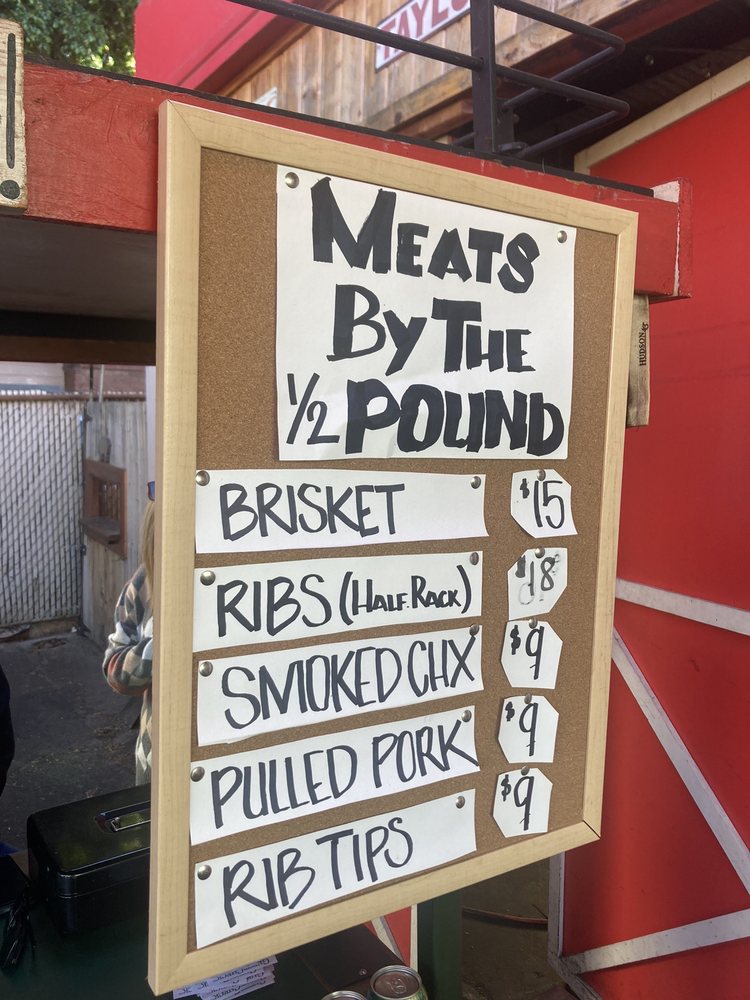 TAYLO
MEATS
BY THE
1/2 POUND
BRISKET $15
RIBS (HALF. RACK) $18
SMOKED CHX $9
PULLED PORK $9
RIB TIPS $9
HUDSON